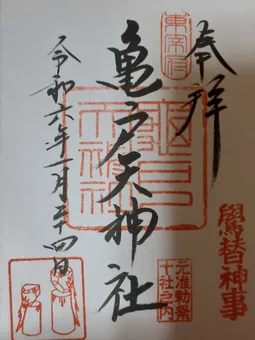 奉拝
鷽替神事
東宰府
亀戸天神社
元准勅祭
十社之内
令和六年一月二十四日